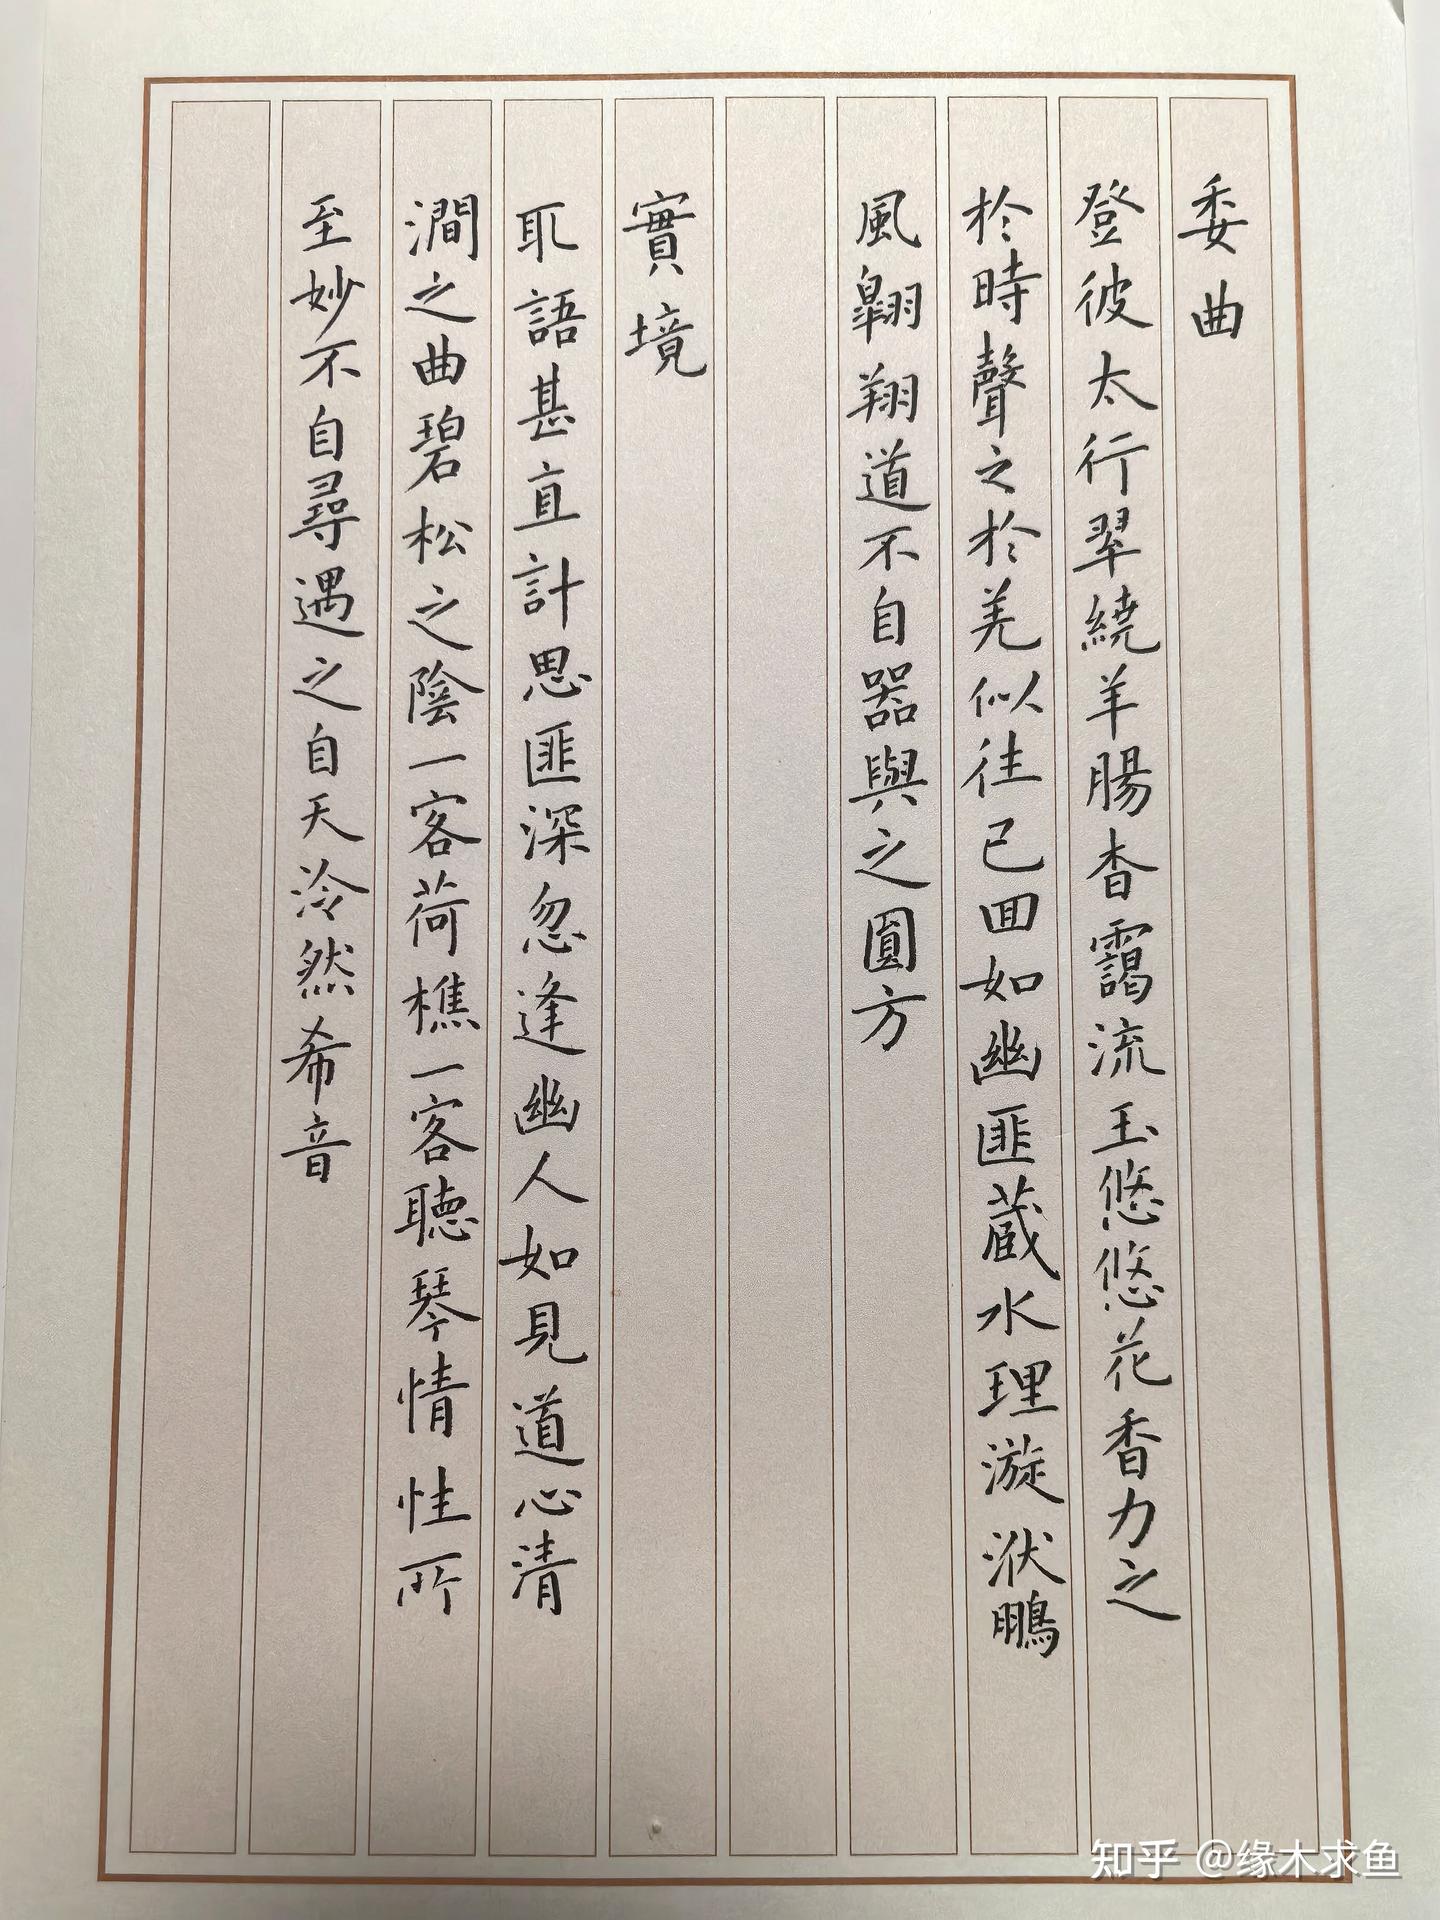 委曲
登彼太行翠繞羊腸杳靄流玉悠悠花香力之
於時聲之於羌似往已回如幽匪藏水理漩洑鵬
風翺翔道不自器與之圓方
實境
取語甚直計思匪深忽逢幽人如見道心清
澗之曲碧松之陰一客荷樵一客聽琴情性所
至妙不自尋遇之自天泠然希音
知乎 @缘木求鱼